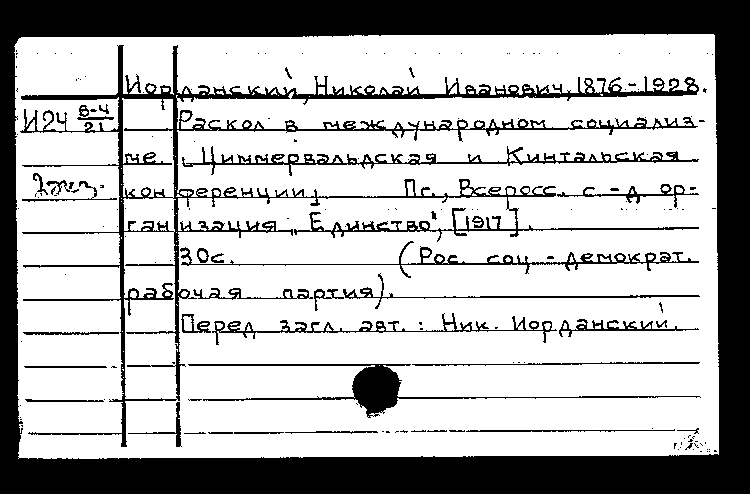 Иорданский, Николай Иванович, 1876-1928.
И24 8-4/21 Раскол в международном социализ-
ме. „Циммервальдская и Кинтальская
2 экз. конференции". Пг., Всеросс. с.-д. ор-
ганизация „Единство", [1917].
30с. (Рос. соц.-демократ.
рабочая партия).
Перед загл. авт.: Ник. Иорданский.